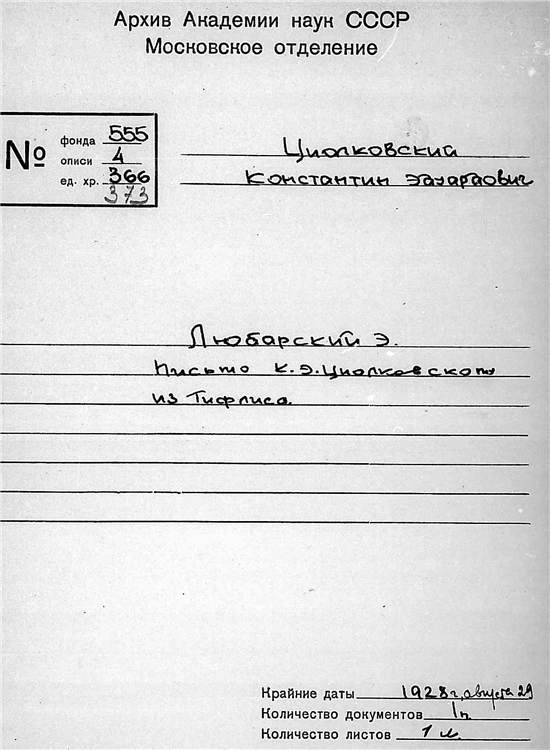 Архив Академии наук СССР
Московское отделение
№
фонда 555
описи 4
ед. хр. 366
373
Циолковский
Константин Эдуардович
Любарский Э.
Письмо К.Э.Циолковскому
из Тифлиса.
Крайние даты 1928 г, августа 29
Количество документов 1п
Количество листов 1 л.